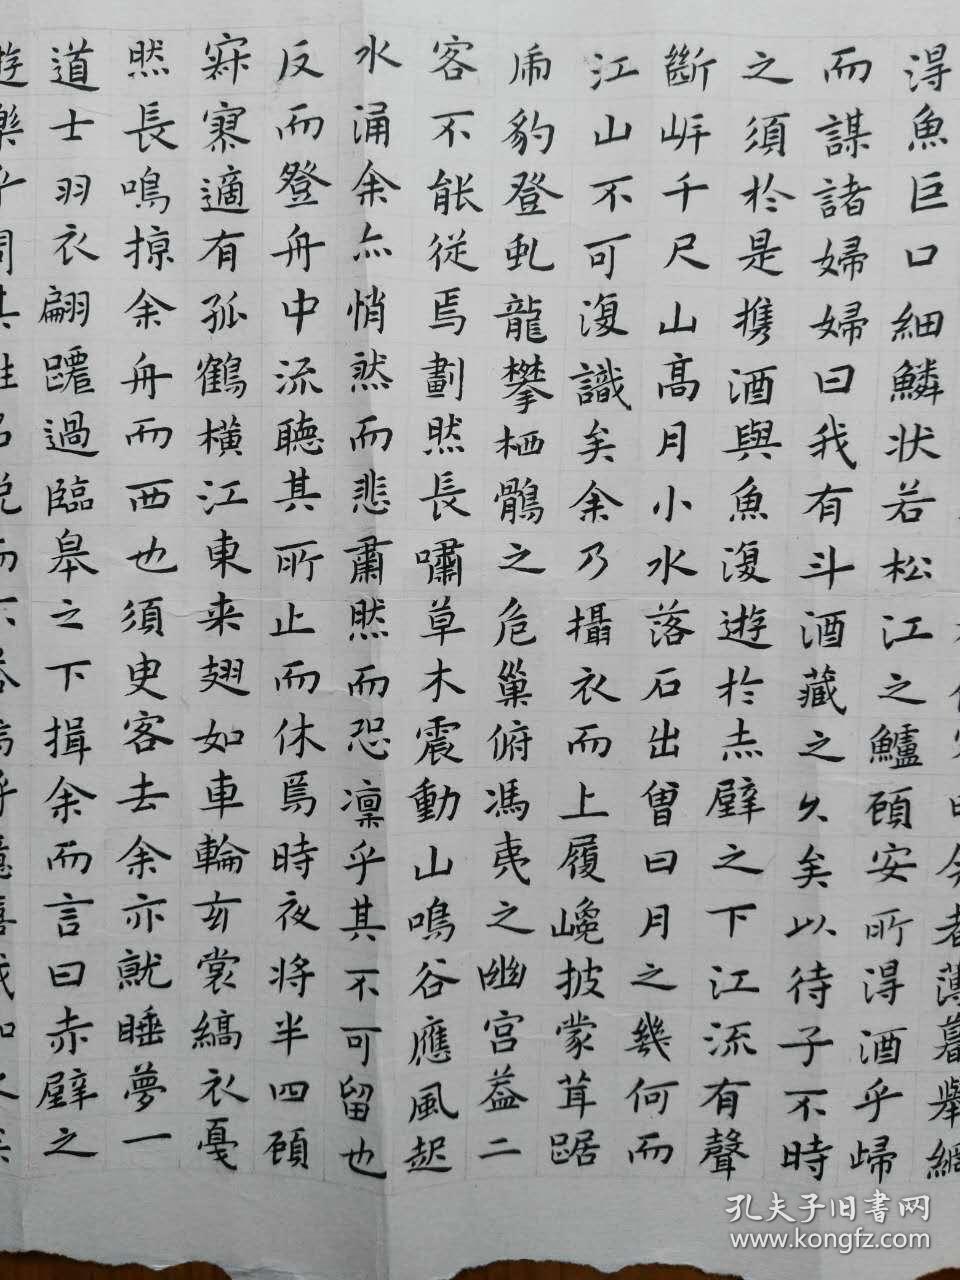 今者薄暮舉網
得魚巨口細鱗状若松江之鱸顧安所得酒乎歸
而謀諸婦婦曰我有斗酒藏之久矣以待子不時
之須於是携酒與魚復遊於赤壁之下江流有聲
斷岸千尺山高月小水落石出曾日月之幾何而
江山不可復識矣余乃攝衣而上履巉披蒙茸踞
虎豹登虬龍攀栖鶻之危巢俯馮夷之幽宮益二
客不能從焉劃然長嘯草木震動山鳴谷應風起
水涌余亦悄然而悲肅然而恐凜乎其不可留也
反而登舟中流聽其所止而休焉時夜将半四顧
寂寥適有孤鶴橫江東来翅如車輪玄裳縞衣戛
然長鳴掠余舟而西也須臾客去余亦就睡夢一
道士羽衣翩躚過臨皋之下揖余而言曰赤壁之
遊樂乎
孔夫子旧书网
www.kongfz.com